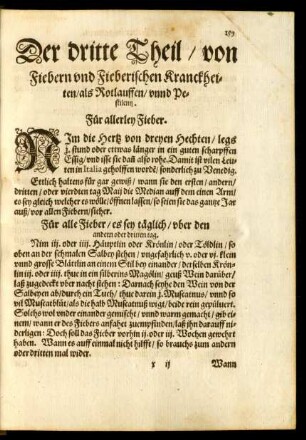 199
Der dritte Theil / von
Fiebern vnd Fieberischen Kranckhei-
ten / als Rotlauffen / vnnd Pe-
stilentz.
Für allerley Fieber.
NIm die Hertz von dreyen Hechten / legs
j. stund oder etwas länger in ein guten scharpffen
Essig / vnd isse sie dañ also rohe. Damit ist vilen Leu-
ten in Italia geholffen wordẽ / sonderlich zu Venedig.
Etlich haltens für gar gewiß / wann sie den ersten / andern /
dritten / oder vierdten tag Maij die Median auff dem einen Arm /
es sey gleich welcher es wölle / öffnen lassen / so seien sie das gantze Jar
auß / vor allen Fiebern / sicher.
Für alle Fieber / es sey täglich / vber den
andern oder dritten tag.
Nim iij. oder iiij. Häuptlin oder Krönlin / oder Töldlin / so
oben an der schmalen Salbey stehen / vngefahrlich v. oder vj. klein
vnnd grosse Blätlin an einem Stil bey einander / derselben Krön-
lin iij. oder iiij. thue in ein silberins Magölin / geuß Wein darüber /
laß zugedeckt vber nacht stehen: Darnach seyhe den Wein von der
Salbeyen ab / durch ein Tuch / thue darein j. Muscatnus / vnnd so
vil Muscatblüt / als die halb Muscatnuß wigt / beide rein gepülfert.
Solchs wol vnder einander gemischt / vnnd warm gemacht / gib ei-
nem / wann er des Fiebers anfahet zuempfinden / laß ihn darauff ni-
derligen: Doch soll das Fieber vorhin ij. oder iij. Wochen gewehrt
haben. Wann es auff einmal nicht hilfft / so brauchs zum andern
oder dritten mal wider.
x ij Wann